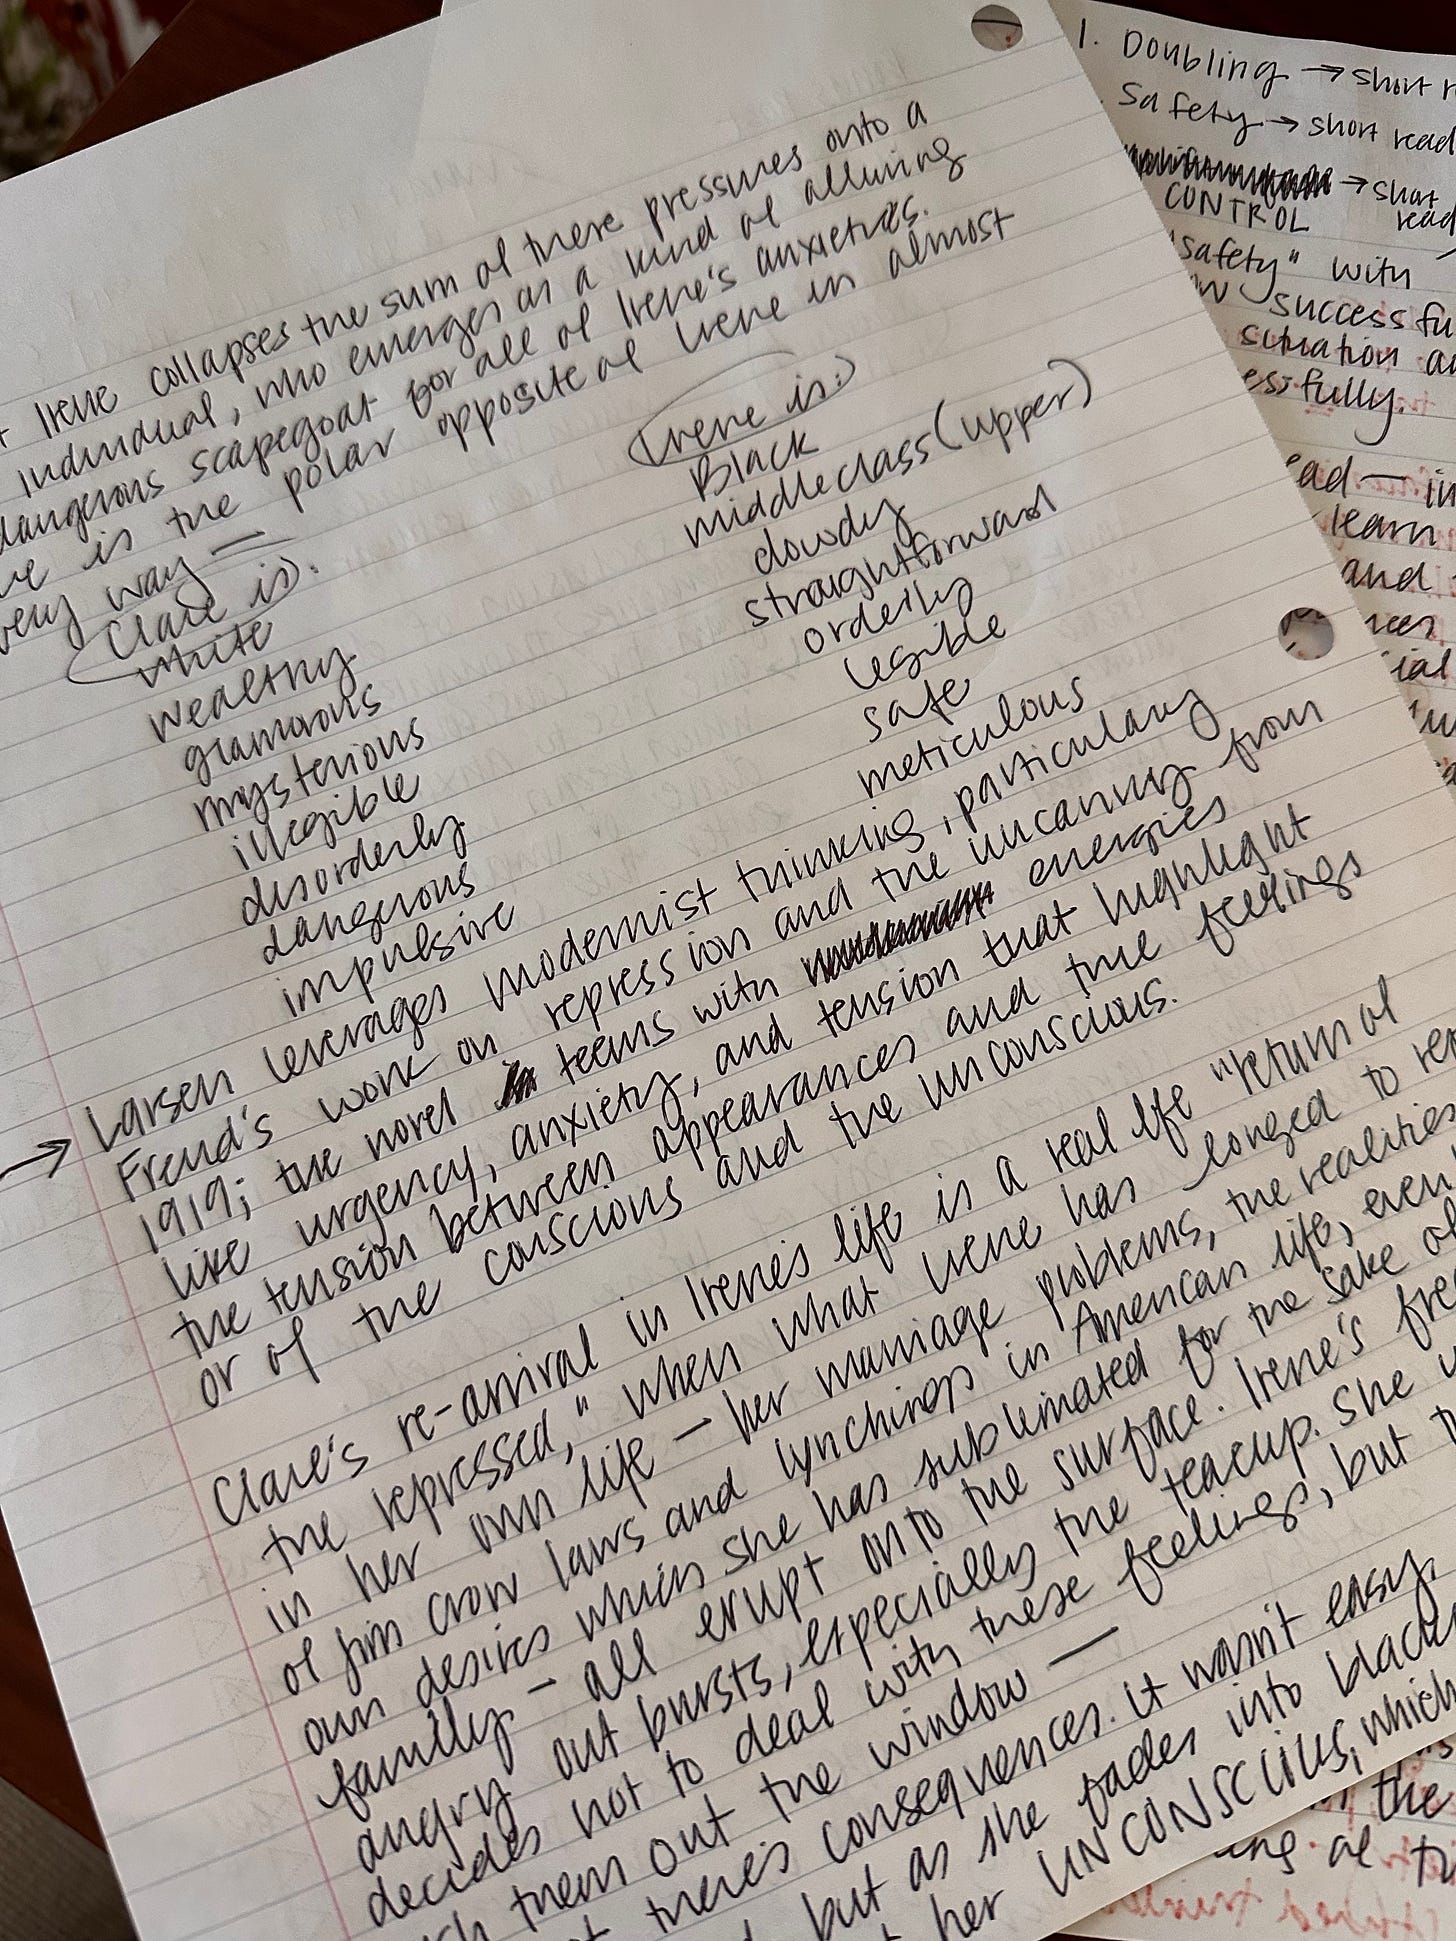 Irene collapses the sum of these pressures onto a
individual, who emerges as a kind of alluring
dangerous scapegoat for all of Irene's anxieties.
is the polar opposite of Irene in almost
very way —
Clare is:
white
wealthy
glamorous
mysterious
illegible
disorderly
dangerous
impulsive
Irene is:
Black
middleclass (upper)
dowdy
straightforward
orderily
legible
safe
meticulous
→ Larsen leverages modernist thinking, particularly
Freud's work on repression and the uncanny from
1919; the novel teems with energies
like urgency, anxiety, and tension that highlight
the tension between appearances and true feelings
or of the conscious and the unconscious.
Clare's re-arrival in Irene's life is a real life "return of
the repressed," when what Irene has longed to
in her own life — her marriage problems, the realities
of Jim Crow laws and lynchings in American life, even
own desires which she has sublimated for the sake of
family — all erupt onto the surface. Irene's
angry outbursts, especially the teacup. She
decides not to deal with these feelings, but
them out the window —
there's consequences. It wasn't easy,
but as she fades into
her UNCONSCIOUS, which
1. Doubling → short
Safety → short read
→ short
CONTROL read
"safety" with
successfu
situation
essfully.
ead — in
learn
and
cial
the
ing of